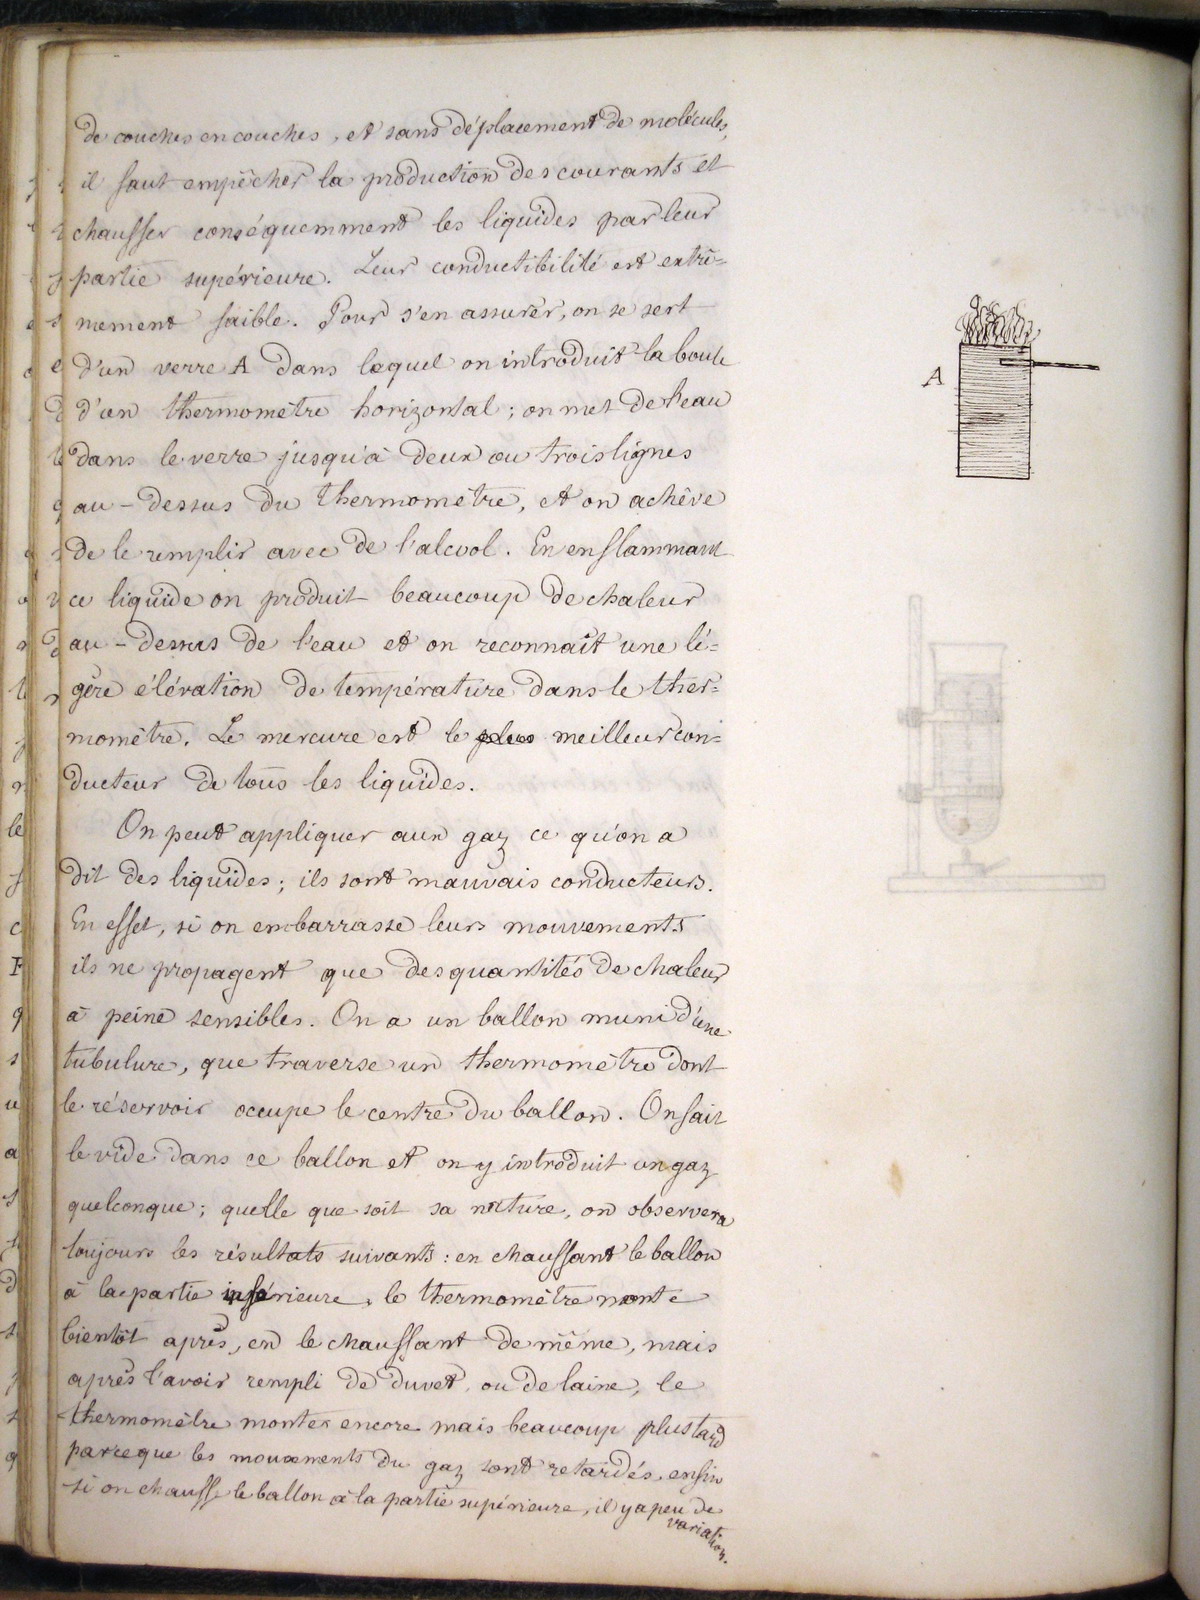 de couches en couches, et sans déplacement de molécules,
il faut empêcher la production des courants et
chauffer conséquemment les liquides par leur
partie supérieure. Leur conductibilité est extrê=
mement faible. Pour s'en assurer, on se sert
d'un verre A dans lequel on introduit la boule
d'un thermomètre horizontal ; on met de l'eau
dans le verre jusqu'à deux ou trois lignes
au-dessus du thermomètre, et on achève
de le remplir avec de l'alcool. En enflammant
ce liquide on produit beaucoup de chaleur
au-dessus de l'eau et on reconnaît une lé=
gère élévation de température dans le ther=
momètre. Le mercure est le plus meilleur con=
ducteur de tous les liquides.
On peut appliquer aux gaz ce qu'on a
dit des liquides ; ils sont mauvais conducteurs.
En effet, si on embarrasse leurs mouvements
ils ne propagent que des quantités de chaleur
à peine sensibles. On a un ballon muni d'une
tubulure, que traverse un thermomètre dont
le réservoir occupe le centre du ballon. On fait
le vide dans ce ballon et on y introduit un gaz
quelconque ; quelle que soit sa nature, on observera
toujours les résultats suivants : en chauffant le ballon
à la partie inférieure, le thermomètre monte
bientôt après, en le chauffant de même, mais
après l'avoir rempli de duvet, ou de laine, le
thermomètre monter encore mais beaucoup plus tard
parce que les mouvements du gaz sont retardés, enfin
si on chauffe le ballon à la partie supérieure, il y a peu de
variation.
A